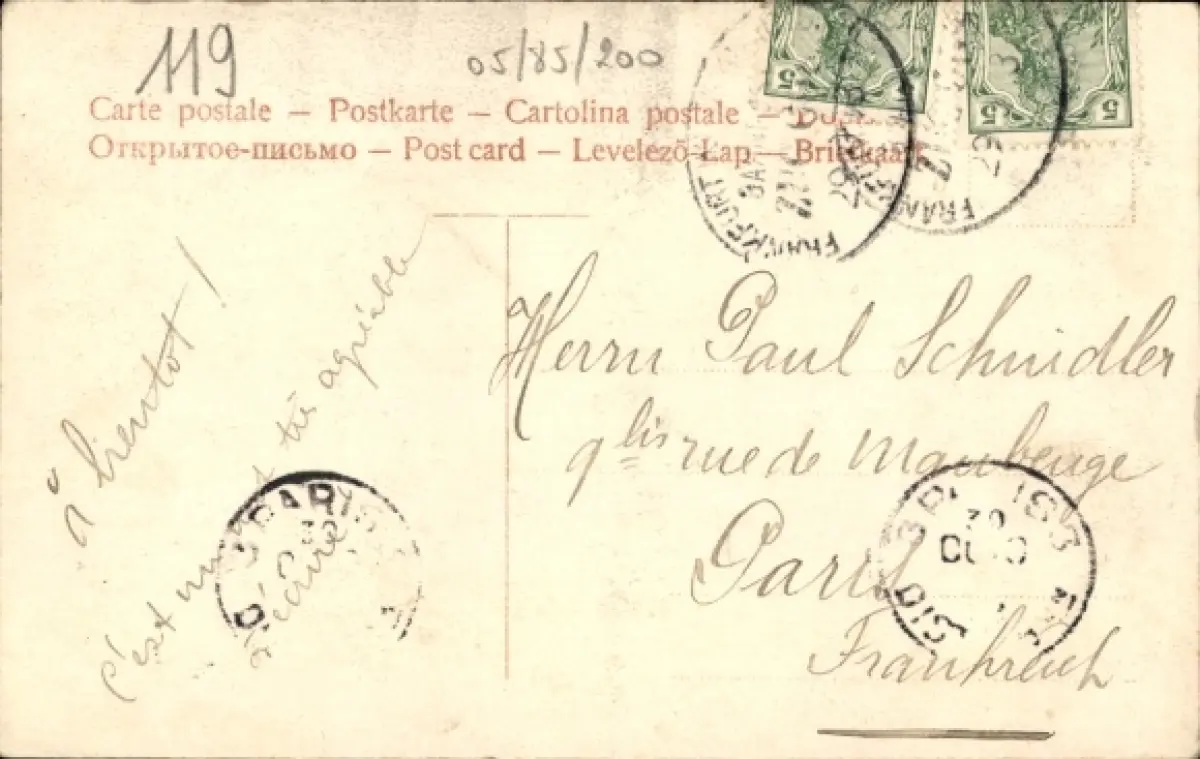 119
05/85/200
Carte postale – Postkarte – Cartolina postale –
Открытое-письмо – Post card – Levelező-Lap – Briefkaart
5
5
FRANKFURT
29
FRAN
29
à bientot !
c'est agréable
écrire
Herrn Paul Schnidler
9 bis rue de Maubeuge
Paris
Frankreich
PARIS
30
30